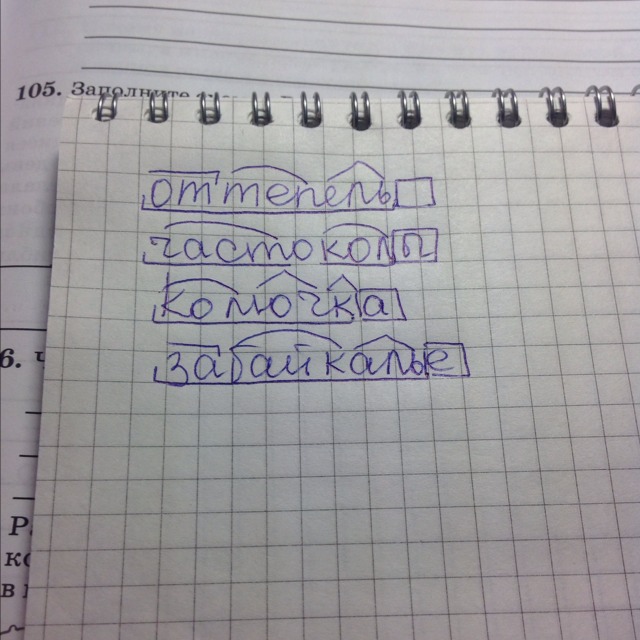 105. Заполните
оттепель
частокол
колючка
забайкалье
6. ч
Р
ко
в